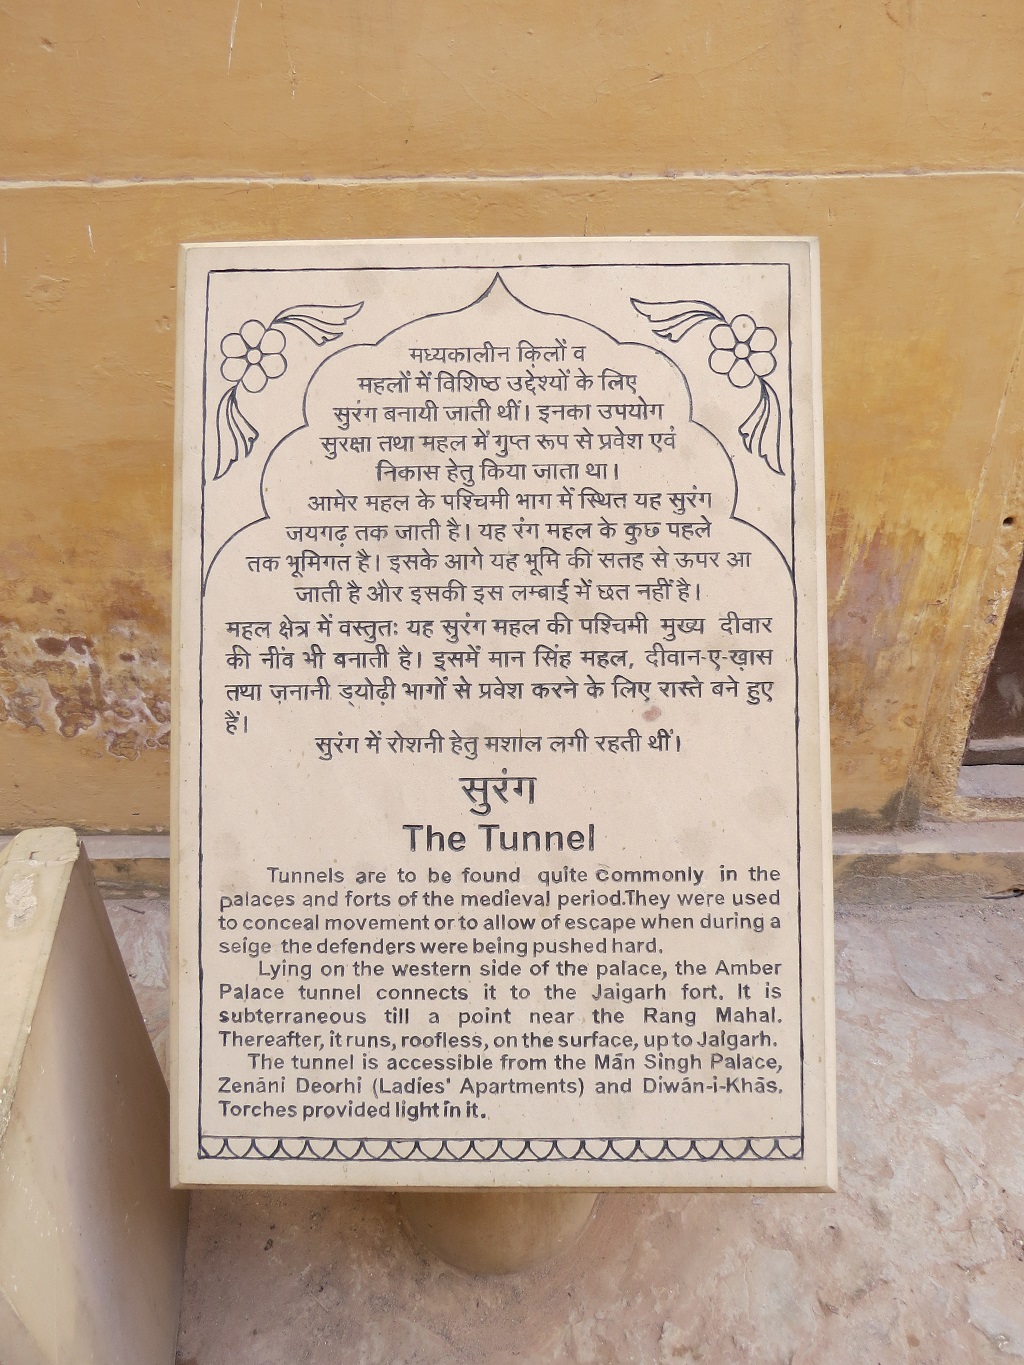 मध्यकालीन क़िलों व
महलों में विशिष्ठ उद्देश्यों के लिए
सुरंग बनायी जाती थीं। इनका उपयोग
सुरक्षा तथा महल में गुप्त रूप से प्रवेश एवं
निकास हेतु किया जाता था।
आमेर महल के पश्चिमी भाग में स्थित यह सुरंग
जयगढ़ तक जाती है। यह रंग महल के कुछ पहले
तक भूमिगत है। इसके आगे यह भूमि की सतह से ऊपर आ
जाती है और इसकी इस लम्बाई में छत नहीं है।
महल क्षेत्र में वस्तुतः यह सुरंग महल की पश्चिमी मुख्य दीवार
की नींव भी बनाती है। इसमें मान सिंह महल, दीवान-ए-ख़ास
तथा ज़नानी ड्योढ़ी भागों से प्रवेश करने के लिए रास्ते बने हुए
हैं।
सुरंग में रोशनी हेतु मशाल लगी रहती थीं।
सुरंग
The Tunnel
Tunnels are to be found quite commonly in the
palaces and forts of the medieval period.They were used
to conceal movement or to allow of escape when during a
seige the defenders were being pushed hard.
Lying on the western side of the palace, the Amber
Palace tunnel connects it to the Jaigarh fort. It is
subterraneous till a point near the Rang Mahal.
Thereafter, it runs, roofless, on the surface, up to Jaigarh.
The tunnel is accessible from the Mān Singh Palace,
Zenāni Deorhi (Ladies' Apartments) and Diwān-i-Khās.
Torches provided light in it.